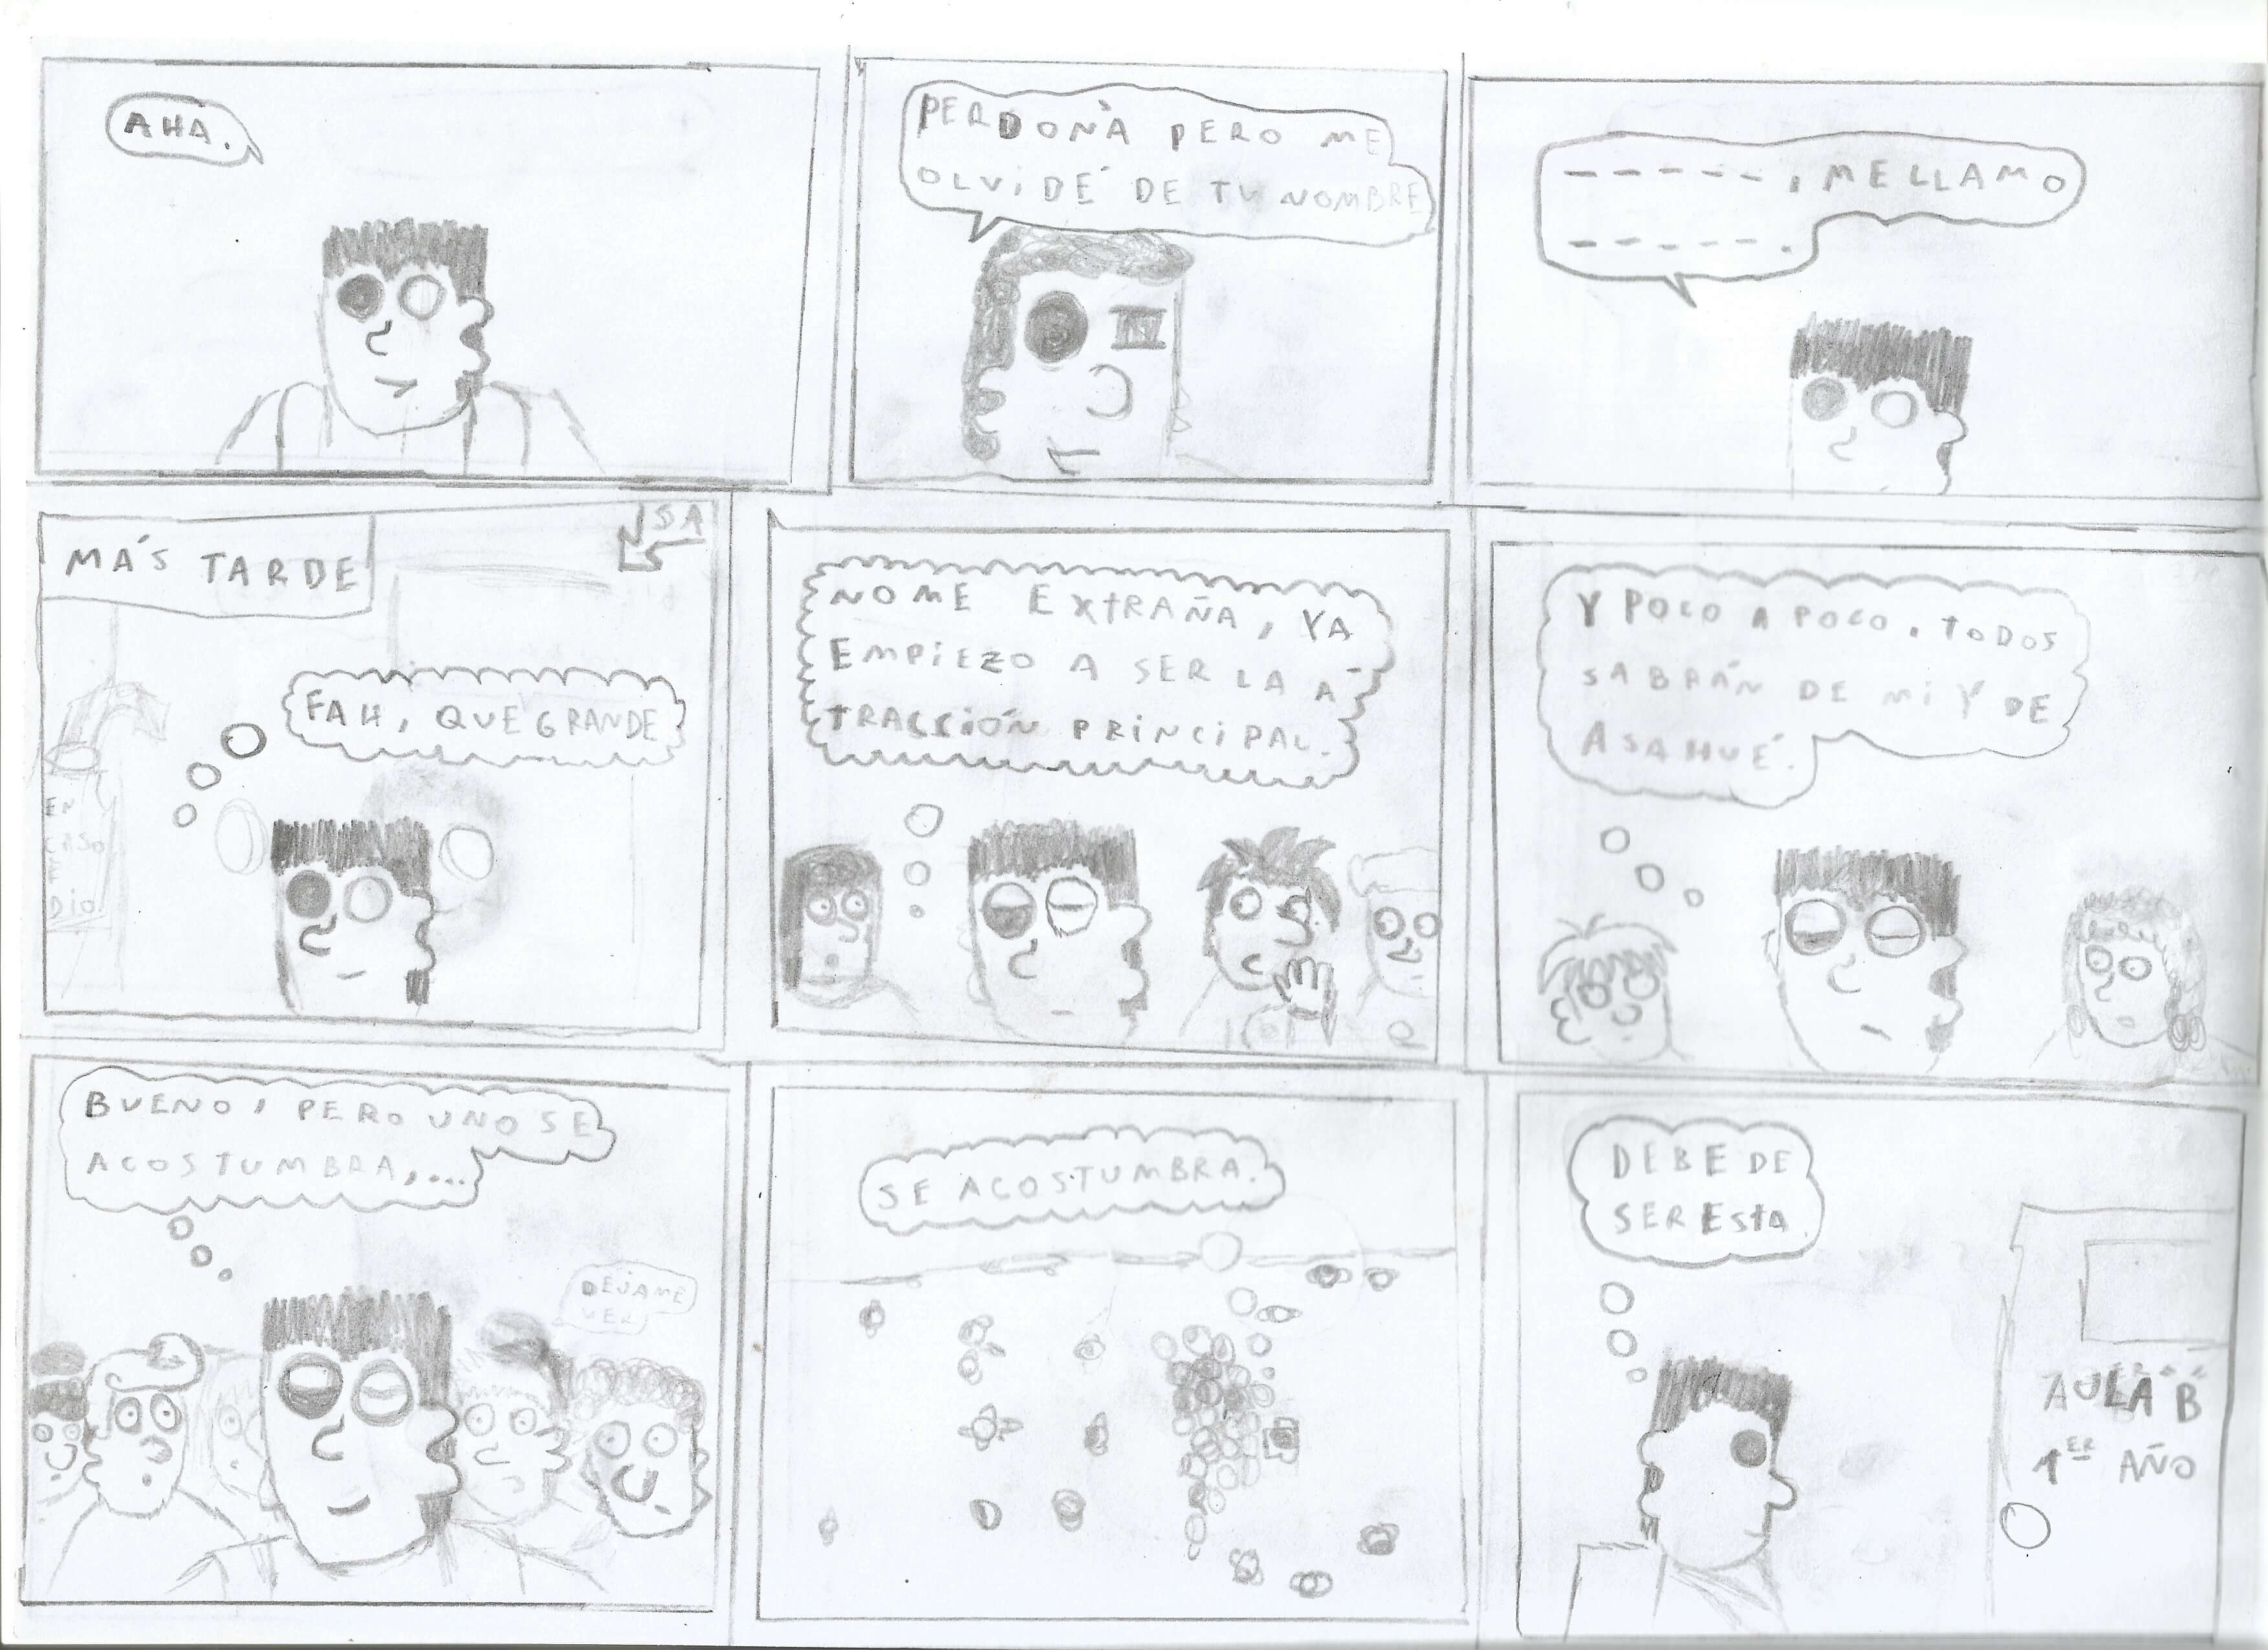 AHA.
PERDONÁ PERO ME
OLVIDÉ DE TU NOMBRE
-----, ME LLAMO
-----.
MÁS TARDE
SA
FAH, QUE GRANDE
EN
CASO
E
DIO
NO ME EXTRAÑA, YA
EMPIEZO A SER LA A-
TRACCIÓN PRINCIPAL.
Y POCO A POCO, TODOS
SABRÁN DE MI Y DE
ASAHUÉ.
BUENO, PERO UNO SE
ACOSTUMBRA,...
DEJAME
VER
SE ACOSTUMBRA.
DEBE DE
SER ESTA.
AULA "B"
1ER AÑO